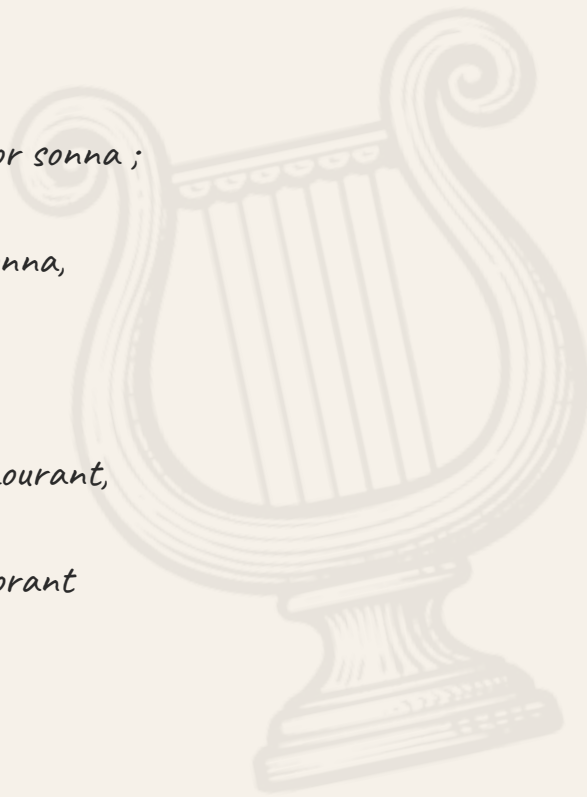 or sonna ;
nna,
ourant,
orant